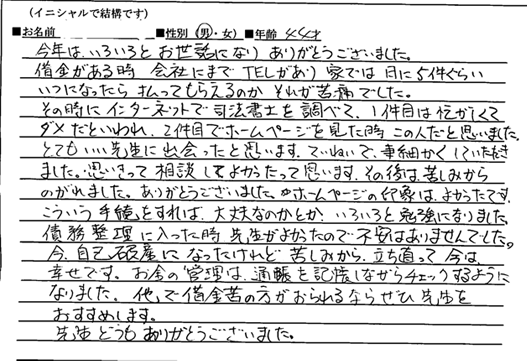 (イニシャルで結構です)
■お名前 ■性別(男・女)■年齢 44才
今年は、いろいろとお世話になりありがとうございました。
借金がある時 会社にまでTELがあり 家では日に5件ぐらい
いつになったら払ってもらえるのか それが苦痛でした。
その時にインターネットで司法書士を調べて、1件目は忙がしくて
ダメだといわれ、2件目でホームページを見た時 この人だと思いました。
とてもいい先生に出会ったと思います。ていねいで、事細かくしていただき
ました。思いきって相談してよかったって思います。その後は苦しみから
のがれました。ありがとうございました。ホームページの印象は、よかったです。
こういう手続をすれば、大丈夫なのかとか、いろいろと勉強になりました
債務整理に入った時 先生がよかったので不安はありませんでした。
今、自己破産になったけれど 苦しみから、立ち直って今は、
幸せです。お金の管理は、通帳を記帳しながらチェックするように
なりました。他で借金苦の方がおられるならぜひ先生を
おすすめします。
先生どうもありがとうございました。